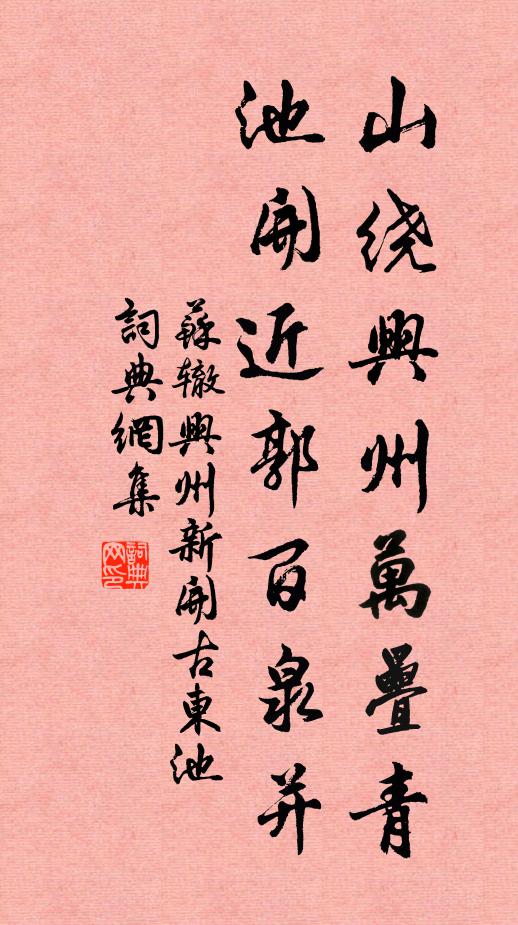 山绕興州萬疊青
池開近郭百泉并
蘇辙興州新開古東池
詞典網集
詞典网印